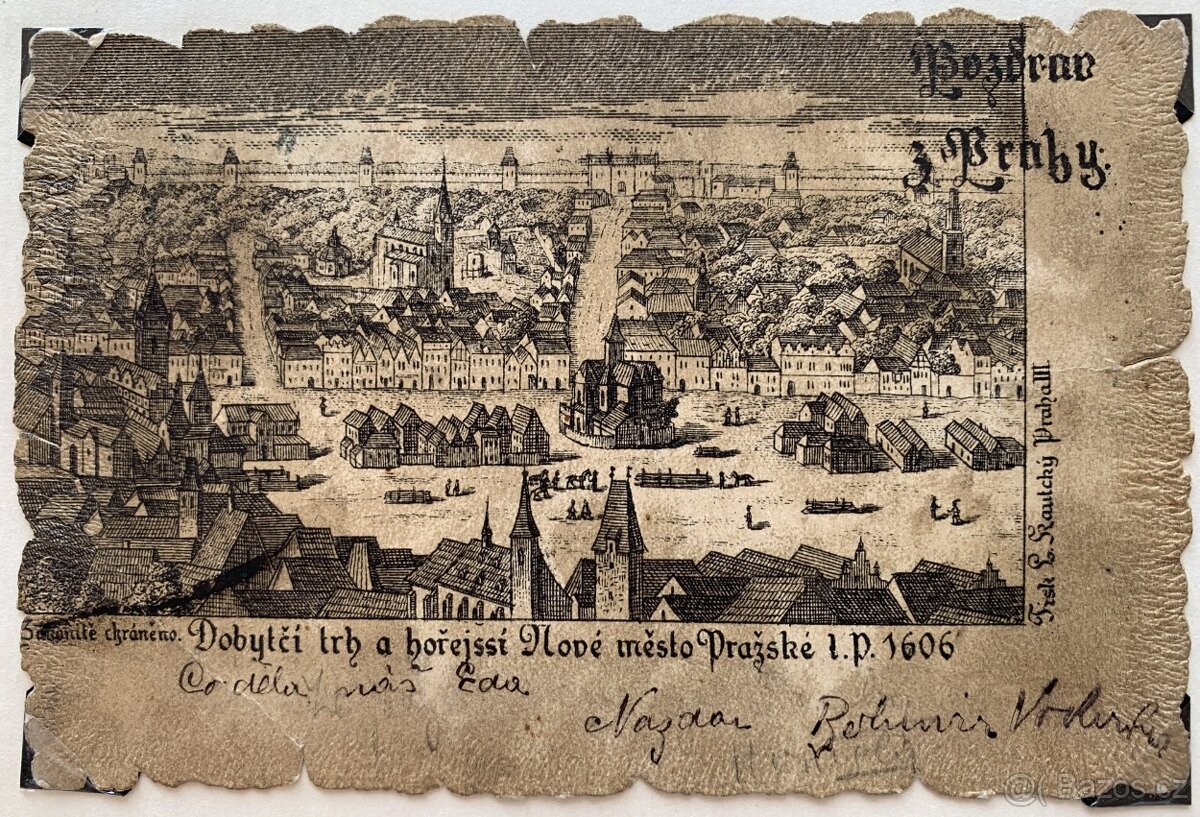 Pozdrav
z Prahy.
Tisk L. Kautcký Praha III.
Zákonitě chráněno.
Dobytčí trh a hořejssí Nové město Pražské l.P. 1606
Co dělá náš Eda
Nazdar Bohumír
Bazos.cz